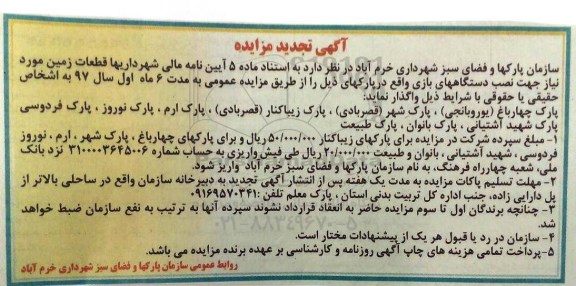 آگهی تجدید مزایده
سازمان پارکها و فضای سبز شهرداری خرم آباد در نظر دارد به استناد ماده ۵ آیین نامه مالی شهرداریها قطعات زمین مورد
نیاز جهت نصب دستگاههای بازی واقع در پارکهای ذیل را از طریق مزایده عمومی به مدت ۶ ماه اول سال ۹۷ به اشخاص
حقیقی یا حقوقی با شرایط ذیل واگذار نماید:
پارک چهارباغ (یوروبانجی) ، پارک شهر (قصربادی) ، پارک زیباکنار (قصربادی) ، پارک ارم ، پارک نوروز ، پارک فردوسی
پارک شهید آشتیانی ، پارک بانوان ، پارک طبیعت
۱- مبلغ سپرده شرکت در مزایده برای پارکهای زیباکنار ۵۰/۰۰۰/۰۰۰ ریال و برای پارکهای چهارباغ ، پارک شهر ، ارم ، نوروز
فردوسی ، شهید آشتیانی ، بانوان و طبیعت ۲۰/۰۰۰/۰۰۰ ریال طی فیش واریزی به حساب شماره ۳۱۰۰۰۰۳۶۴۵۰۰۶ نزد بانک
ملی، شعبه چهارراه فرهنگ، به نام سازمان پارکها و فضای سبز خرم آباد واریز شود.
۲- مهلت تسلیم پاکات مزایده به مدت یک هفته پس از انتشار آگهی تجدید به دبیرخانه سازمان واقع در ساحلی بالاتر از
پل دارایی زاده، جنب اداره کل تربیت بدنی استان ، پارک معلم تلفن: ۰۹۱۶۹۵۷۰۳۴۱
۳- چنانچه برندگان اول تا سوم مزایده حاضر به انعقاد قرارداد نشوند سپرده آنها به ترتیب به نفع سازمان ضبط خواهد
شد.
۴- سازمان در رد یا قبول هر یک از پیشنهادات مختار است.
۵- پرداخت تمامی هزینه های چاپ آگهی روزنامه و کارشناسی بر عهده برنده مزایده می باشد.
روابط عمومی سازمان پارکها و فضای سبز شهرداری خرم آباد
۰۲۱-۸۸۳۴۹۶۷۰-۵